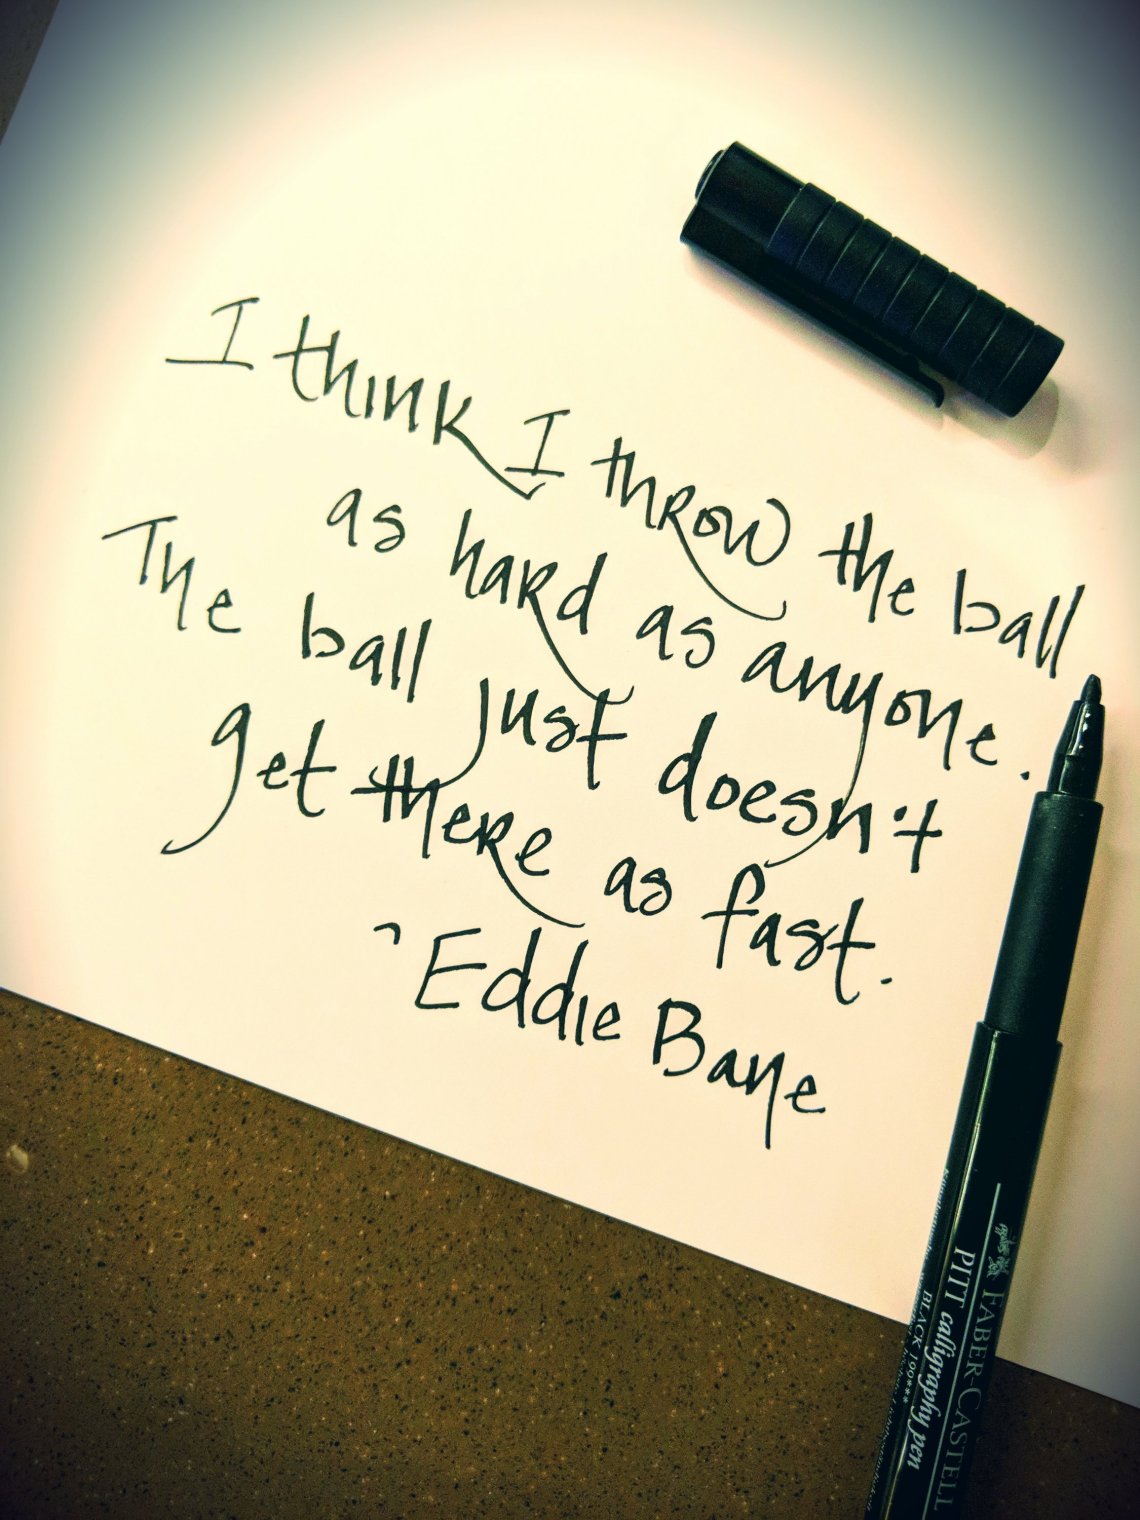 I think I throw the ball
as hard as anyone.
The ball just doesn't
get there as fast.
~Eddie Bane
FABER CASTELL
PITT calligraphy pen
BLACK 199***